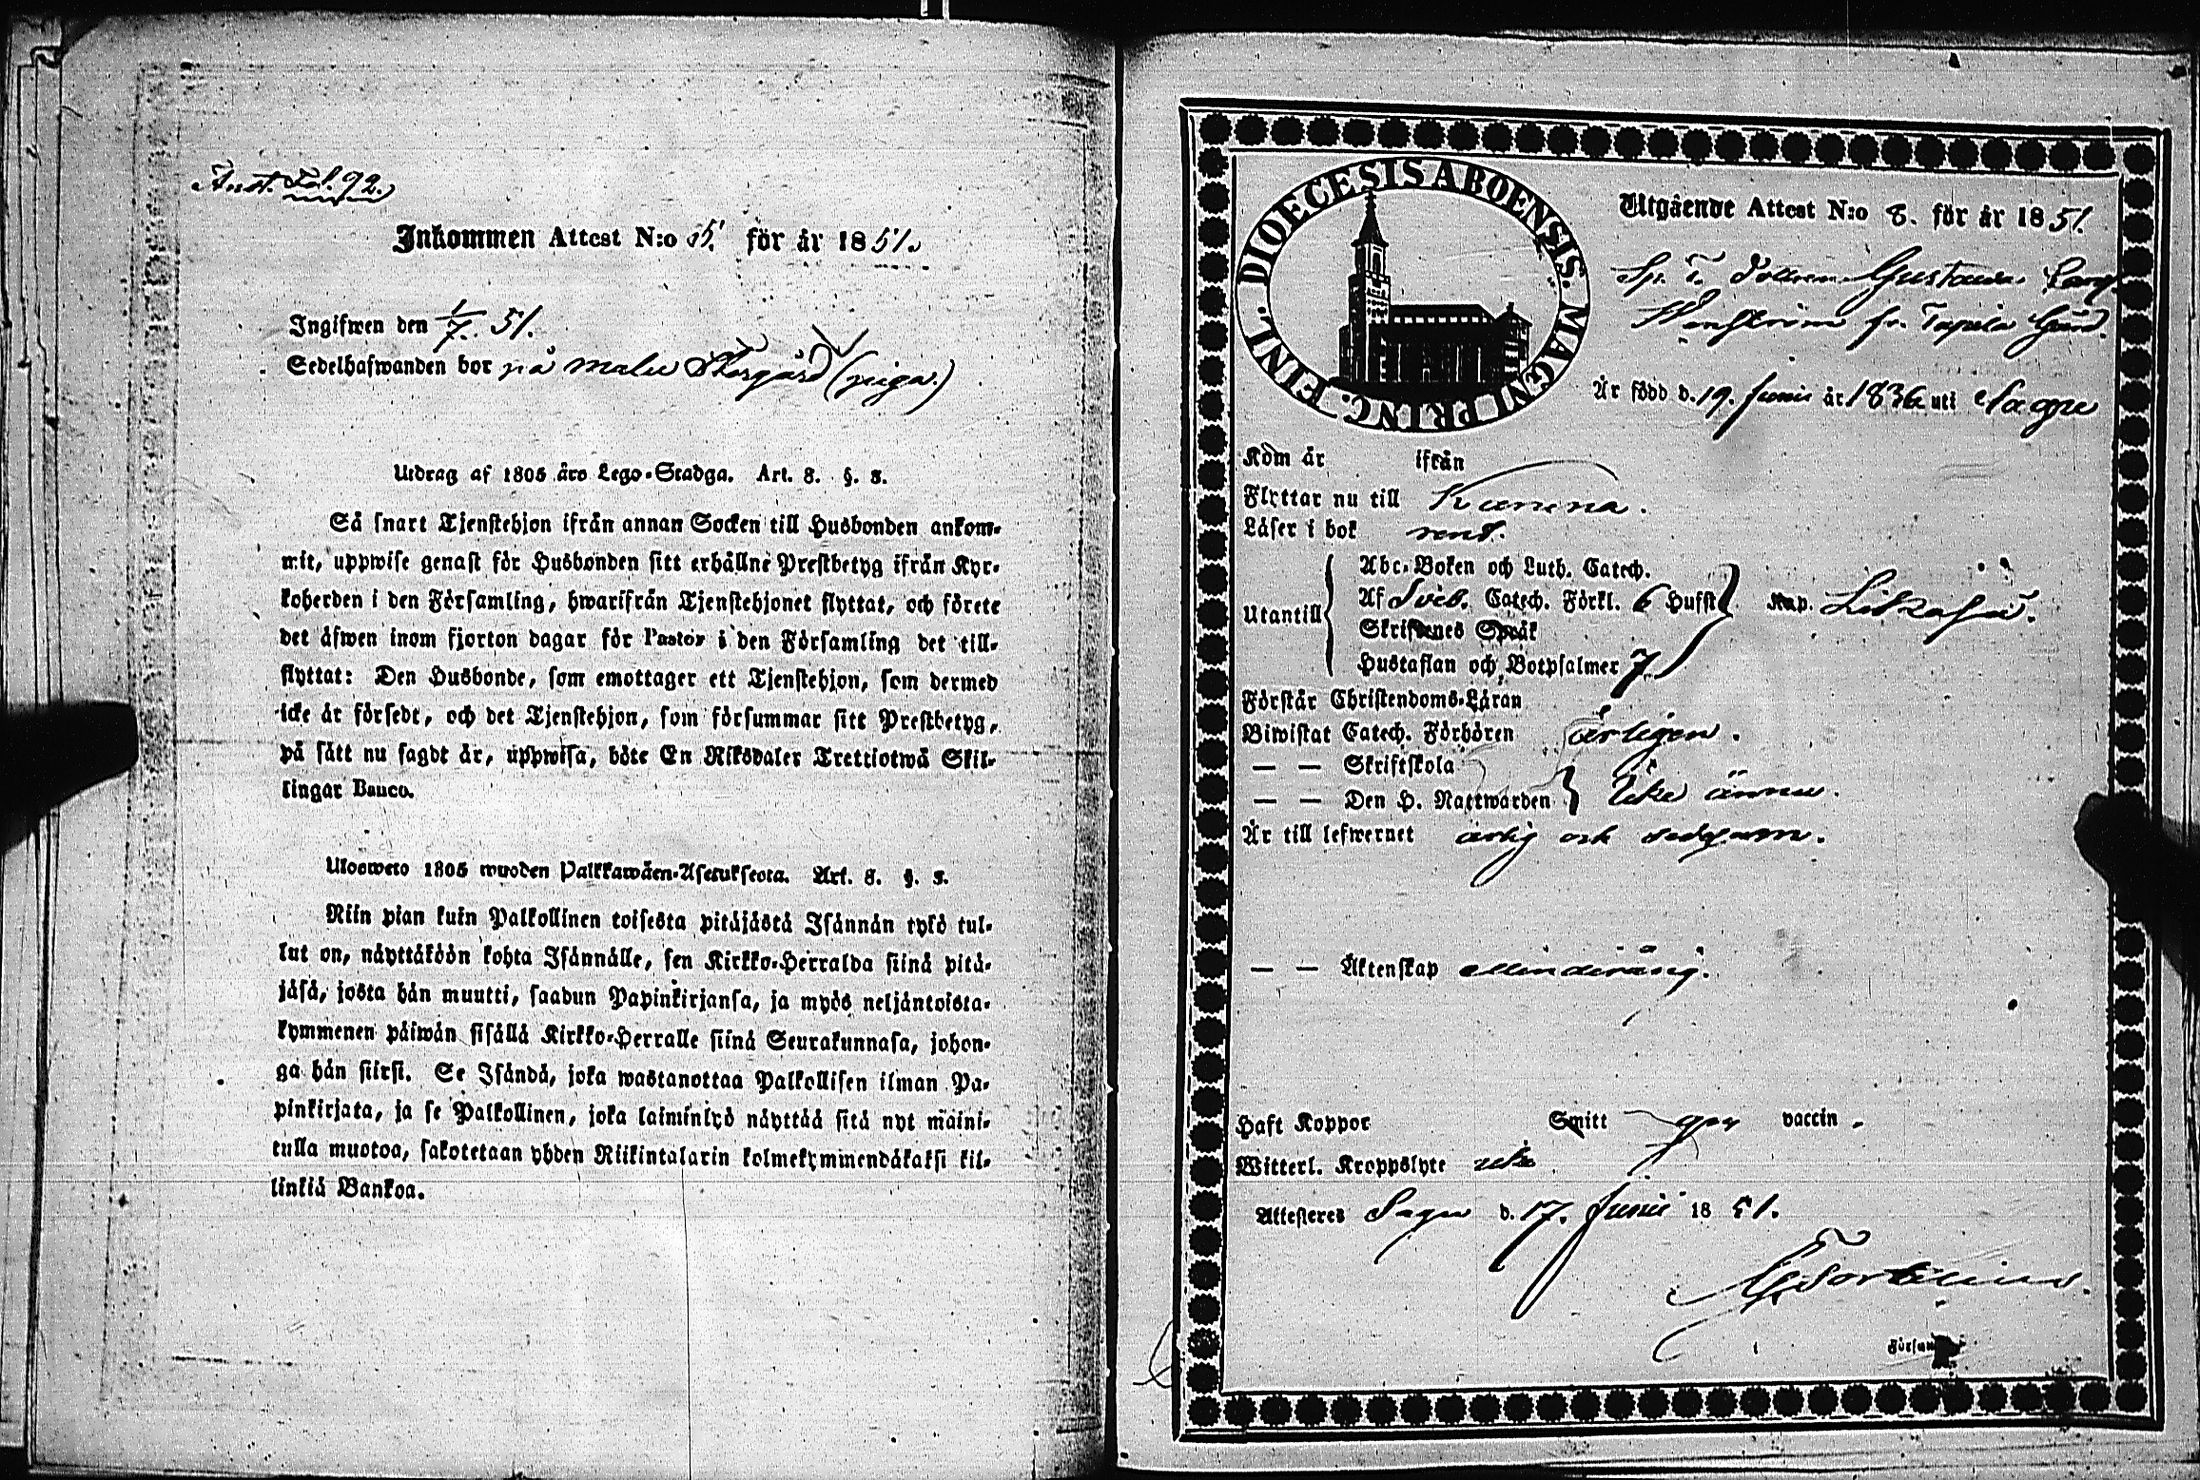 Anst. Fol. 92.
Inkommen Attest N:o 35. för år 1851.
Ingifwen den 1/7. 51.
Sedelhafwanden bor på Skärgård (piga.)
Utdrag af 1805 års Lego-Stadga. Art. 8. §. 5.
Så snart Tjenstehjon ifrån annan Socken till Husbonden ankom-
mit, uppwise genast för Husbonden sitt erhållne Prestbetyg ifrån Kyr-
koherden i den Församling, hwarifrån Tjenstehjonet flyttat, och förete
det åfwen inom fjorton dagar för Pastor i den Församling det till-
flyttat: Den Husbonde, som emottager ett Tjenstehjon, som dermed
icke är försedt, och det Tjenstehjon, som försummar sitt Prestbetyg,
på sått nu sagdt är, uppwisa, böte En Riksdaler Trettiotwå Skil-
lingar Banco.
Ulosweto 1805 wuoden Palkkawäen-Asetuksesta. Art. 8. §. 5.
Niin pian kuin Palkollinen toisesta pitäjästä Isännän tykö tul-
lut on, näyttäköön kohta Isännälle, sen Kirkko-Herralda siinä pitä-
jäsä, josta hän muutti, saadun Papinkirjansa, ja myös neljäntoista-
kymmenen päiwän sisällä Kirkko-Herralle siinä Seurakunnasa, johon-
ga hän siirsi. Se Isändä, joka wastanottaa Palkollisen ilman Pa-
pinkirjata, ja se Palkollinen, joka laiminlyö näyttää sitä nyt maini-
tulla muotoa, sakotetaan yhden Riikintalarin kolmekymmendäkaksi kil-
linkiä Bankoa.
DIOECESIS ABOENSIS. MAGNI PRINC. FINL.
Utgående Attest N:o 8. för år 1851.
Sp. T. Dottren Gustava
fr. Tapila Gård.
Är född d. 19. Junii år 1836 uti Sagu
Kom år ifrån
Flyttar nu till
Läser i bok rent.
Abc-Boken och Luth. Catech.
Utantill Af Sveb. Catech. Förkl. 6 Hufst. Kap.
Skriftenes Språk
Hustaflan och Botpsalmer 7.
Förstår Christendoms-Läran
Biwistat Catech. Förhören årligen.
— — Skriftskola
— — Den H. Nattwarden icke ännu.
Är till lefwernet ärlig och sedesam.
— — Äktenskap minderårig.
Haft Koppor Smitt gm vaccin.
Witterl. Kroppslyte icke
Attesteres Sagu d. 17. Junii 1851.